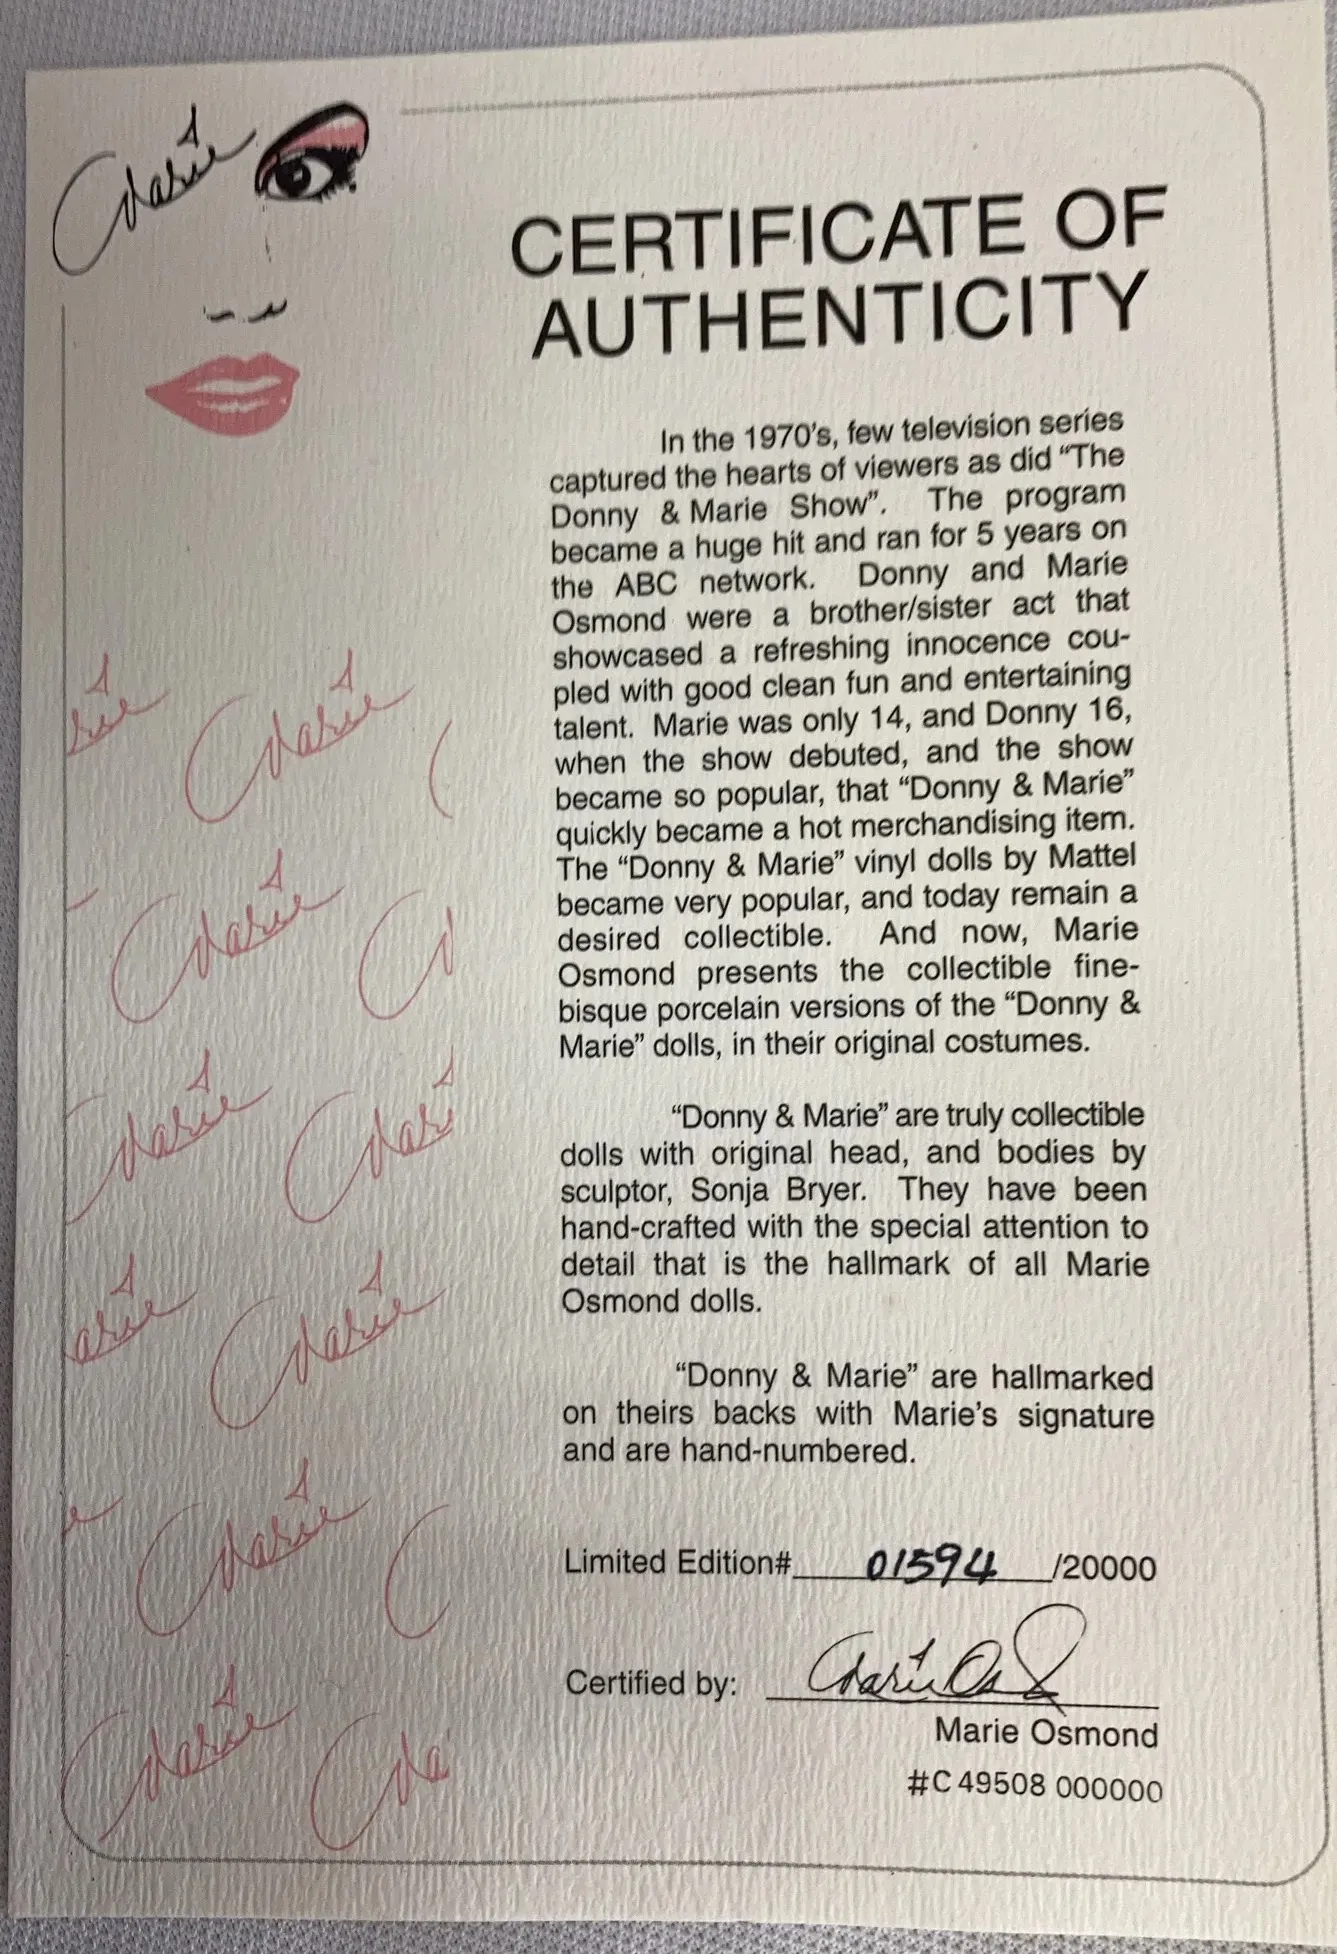 Marie
CERTIFICATE OF
AUTHENTICITY
In the 1970's, few television series
captured the hearts of viewers as did “The
Donny & Marie Show”. The program
became a huge hit and ran for 5 years on
the ABC network. Donny and Marie
Osmond were a brother/sister act that
showcased a refreshing innocence cou-
pled with good clean fun and entertaining
talent. Marie was only 14, and Donny 16,
when the show debuted, and the show
became so popular, that “Donny & Marie”
quickly became a hot merchandising item.
The “Donny & Marie” vinyl dolls by Mattel
became very popular, and today remain a
desired collectible. And now, Marie
Osmond presents the collectible fine-
bisque porcelain versions of the “Donny &
Marie” dolls, in their original costumes.
“Donny & Marie” are truly collectible
dolls with original head, and bodies by
sculptor, Sonja Bryer. They have been
hand-crafted with the special attention to
detail that is the hallmark of all Marie
Osmond dolls.
“Donny & Marie” are hallmarked
on theirs backs with Marie's signature
and are hand-numbered.
Limited Edition# 01594 /20000
Certified by: Marie Os
Marie Osmond
#C 49508 000000
rie Marie
Marie M
Marie Mari
arie Marie
e Marie
Marie Ma